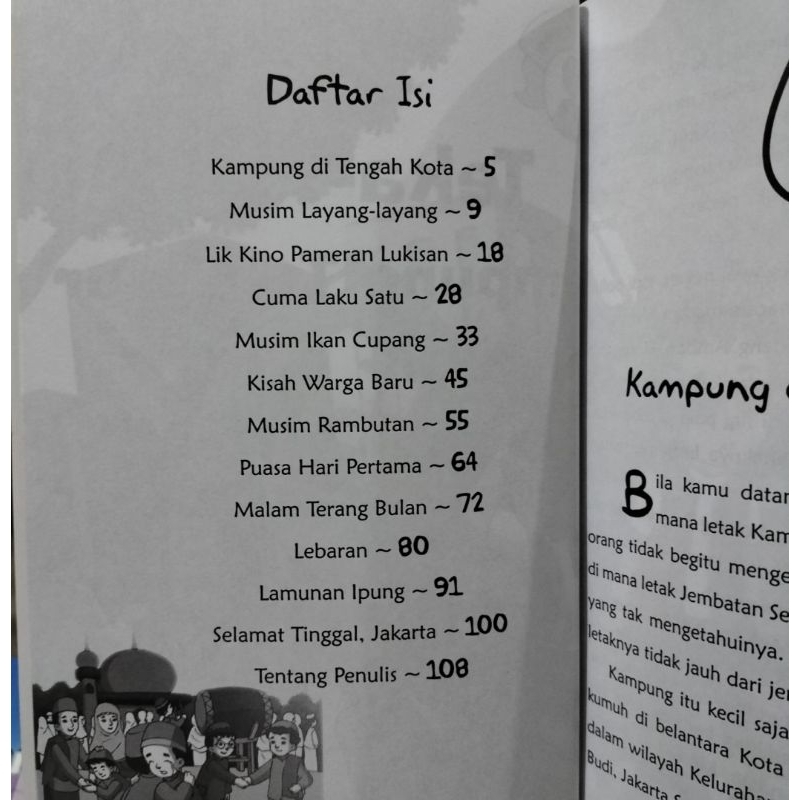 Daftar Isi
Kampung di Tengah Kota ~ 5
Musim Layang-layang ~ 9
Lik Kino Pameran Lukisan ~ 18
Cuma Laku Satu ~ 28
Musim Ikan Cupang ~ 33
Kisah Warga Baru ~ 45
Musim Rambutan ~ 55
Puasa Hari Pertama ~ 64
Malam Terang Bulan ~ 72
Lebaran ~ 80
Lamunan Ipung ~ 91
Selamat Tinggal, Jakarta ~ 100
Tentang Penulis ~ 108
Kampung
Bila kamu datan
mana letak Kam
orang tidak begitu menge
di mana letak Jembatan Se
yang tak mengetahuinya.
letaknya tidak jauh dari jem
Kampung itu kecil saja
kumuh di belantara Kota
dalam wilayah Kelurahan
Budi, Jakarta S